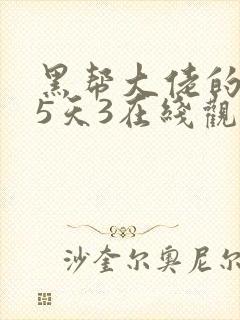 黑帮大佬的
5天3在綫觀
沙奎尔奥尼尔